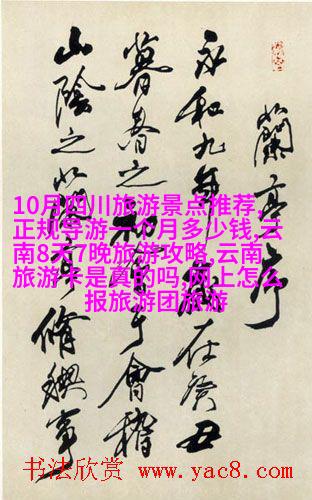 蘭亭序
永和九年歲在癸丑
暮春之初會于會稽
山陰之蘭亭脩禊事
10月四川旅游景点推荐,
正规导游一个月多少钱,云
南8天7晚旅游攻略,云南
旅游卡是真的吗,网上怎么
报旅游团旅游
书法欣赏 www.yac8.com